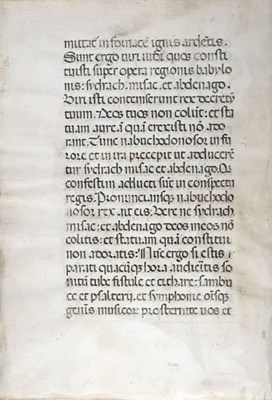 mittat̄ in fornacē ignis ardētis.
Sunt ergo uiri iudei quos consti
tuisti super opera regionis babylo
nis: sydrach. misac. et abdenago.
Viri isti contempserunt rex decretū
tuum. Deos tuos non colūt: et sta
tuam aureā quā erexisti nō ado
rant. Tūc nabuchodonosor in fu
rore et in ira precepit ut adducerē
tur sydrach misac et abdenago. Qⁱ
confestim adducti sūt in conspectu
regis. Pronunciansqȝ nabuchodo
nosor rex ait eis. Vere ne sydrach.
misac: et abdenago deos meos nō
colitis: et statuam quā constitui
non adoratis: Nūc ergo si estis
parati quacūqȝ hora audieritis so
nitū tube fistule et cithare: sambu
ce et psalterij. et symphonie oīsqȝ
gn̄is musicor prosternite uos et